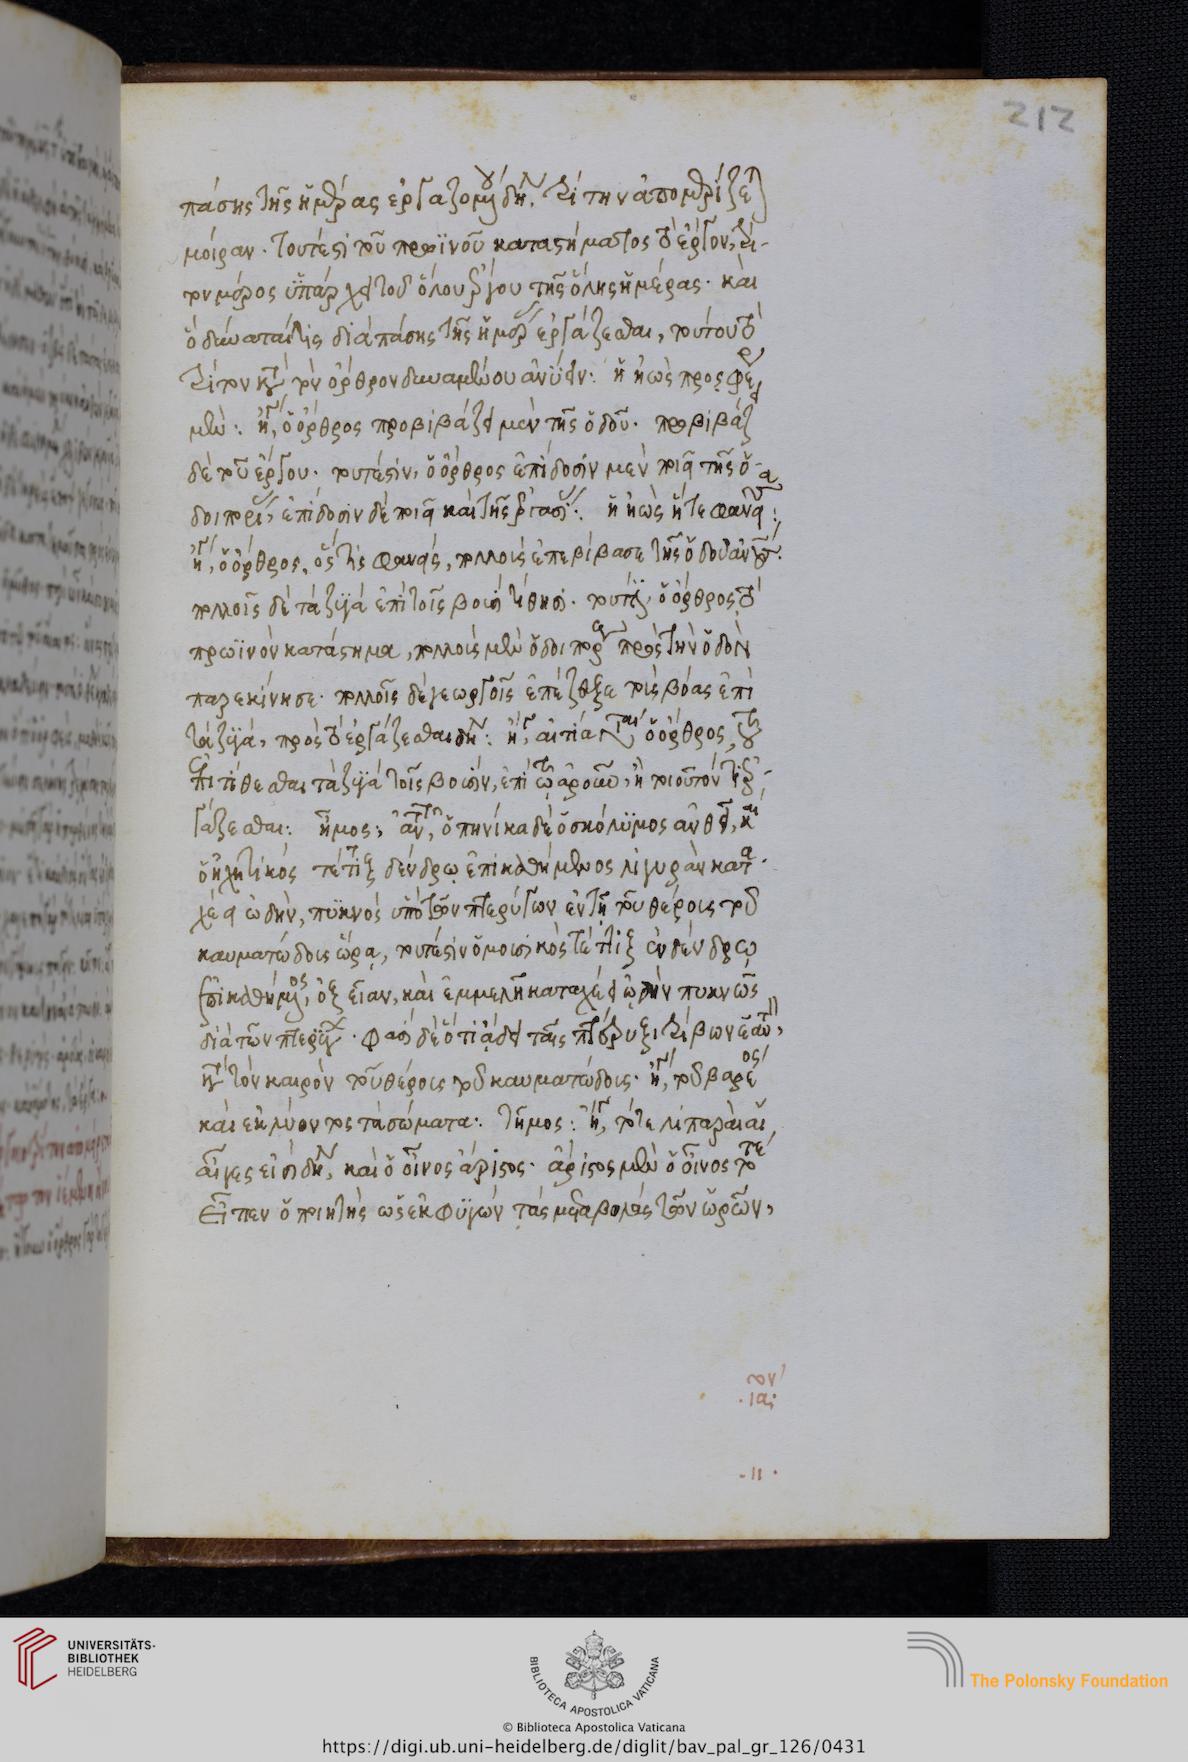 212
πάσης τῆς ἡμέρας ἐργαζομένου δηλονότι. τρίτην ἀπομερίζεται
μοῖραν. τουτέστι τοῦ πρωϊνοῦ καταστήματος τὸ ἔργον, τρί-
τον μέρος ὑπάρχει τοῦ ὅλου ἔργου τῆς ὅλης ἡμέρας. καὶ
ὃ δύναταί τις διὰ πάσης τῆς ἡμέρας ἐργάζεσθαι, τούτου τὸ
τρίτον κατὰ τὸν ὄρθρον δυναμένου ἀνύειν. ἢ ἠὼς προφέρει
μὲν: ἤγουν, ὁ ὄρθρος προβιβάζει μὲν τῆς ὁδοῦ. προβιβάζει
δὲ τοῦ ἔργου. τουτέστιν, ὁ ὄρθρος ἐπίδοσιν μὲν ποιεῖ τῆς ὁ-
δοιπορίας, ἐπίδοσιν δὲ ποιεῖ καὶ τῆς ἐργασίας. ἢ ἠὼς ἥτε φανεῖσα:
ἤγουν, ὁ ὄρθρος, ὅς τις φανεὶς, πολλοὺς ἐπεβίβασε τῆς ὁδοῦ ἀνθρώπους.
πολλοῖς δὲ τὰ ζυγὰ ἐπὶ τοῖς βουσὶ τίθησι. τουτέστιν, ὁ ὄρθρος τὸ
πρωϊνὸν κατάστημα, πολλοὺς μὲν ὁδοιπορεῖν πρὸς τὴν ὁδὸν
παρεκίνησε. πολλοῖς δὲ γεωργοῖς ἐπέζευξε τοὺς βόας ἐπὶ
τὰ ζυγά, πρὸς τὸ ἐργάζεσθαι δηλονότι: ἤγουν, αἰτία ὁ ὄρθρος, τοῦ
ἐπιτίθεσθαι τὰ ζυγὰ τοῖς βουσὶν, ἐπὶ τῷ ἀροτριᾶν, ἢ τοιοῦτόν τι ἐρ-
γάζεσθαι: ἦμος, ἀντὶ τοῦ, ὁπηνίκα δὲ ὁ σκόλυμος ἀνθεῖ, καὶ
ὁ ἠχητικὸς τέττιξ δένδρῳ ἐπικαθήμενος λιγυρὰν κατα-
χέει ὠδὴν, πυκνὸς ὑπὸ τῶν πτερύγων ἐν τῇ τοῦ θέρους τοῦ
καυματώδους ὥρᾳ, τουτέστιν ὁ μουσικὸς τέττιξ ἐν δένδρῳ
ἐπικαθήμενος, ὀξεῖαν, καὶ ἐμμελῆ καταχέει ὠδὴν πυκνῶς
διὰ τῶν πτερύγων. φασὶ δὲ ὅτι ᾄδει ταῖς πτέρυξι τρίβων ἑαυτόν,
κατὰ τὸν καιρὸν τοῦ θέρους τοῦ καυματώδους. ἤγουν, τοῦ βαρέος
καὶ ἐκλύοντος τὰ σώματα: τῆμος: ἤγουν, τότε λιπαραὶ αἱ
αἶγες εἰσὶ δηλονότι, καὶ ὁ οἶνος ἄριστος. ἄριστος μὲν ὁ οἶνος τότε
εἶπεν ὁ ποιητὴς ὡς ἐκφυγὼν τὰς μεταβολὰς τῶν ὡρῶν,
UNIVERSITÄTS-
BIBLIOTHEK
HEIDELBERG
BIBLIOTECA APOSTOLICA VATICANA
The Polonsky Foundation
© Biblioteca Apostolica Vaticana
https://digi.ub.uni-heidelberg.de/diglit/bav_pal_gr_126/0431